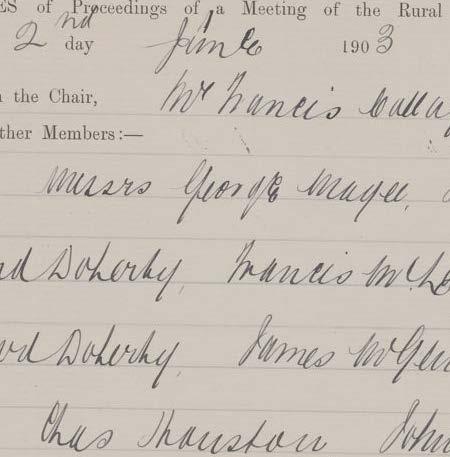 ES of Proceedings of a Meeting of the Rural
2nd day June 1903
n the Chair, Mr Francis Calla
ther Members:—
Messrs George Magee,
rd Doherty, Francis Mc
rd Doherty, James McGe
Chas Thouston John